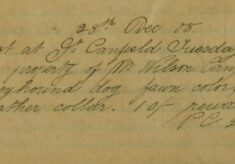 28th Dec 05
st at Gt Canfield Tuesda
property of Mr Wilson Can
eyhound dog fawn color
ather collar. 10/- rewa
P.C. 2